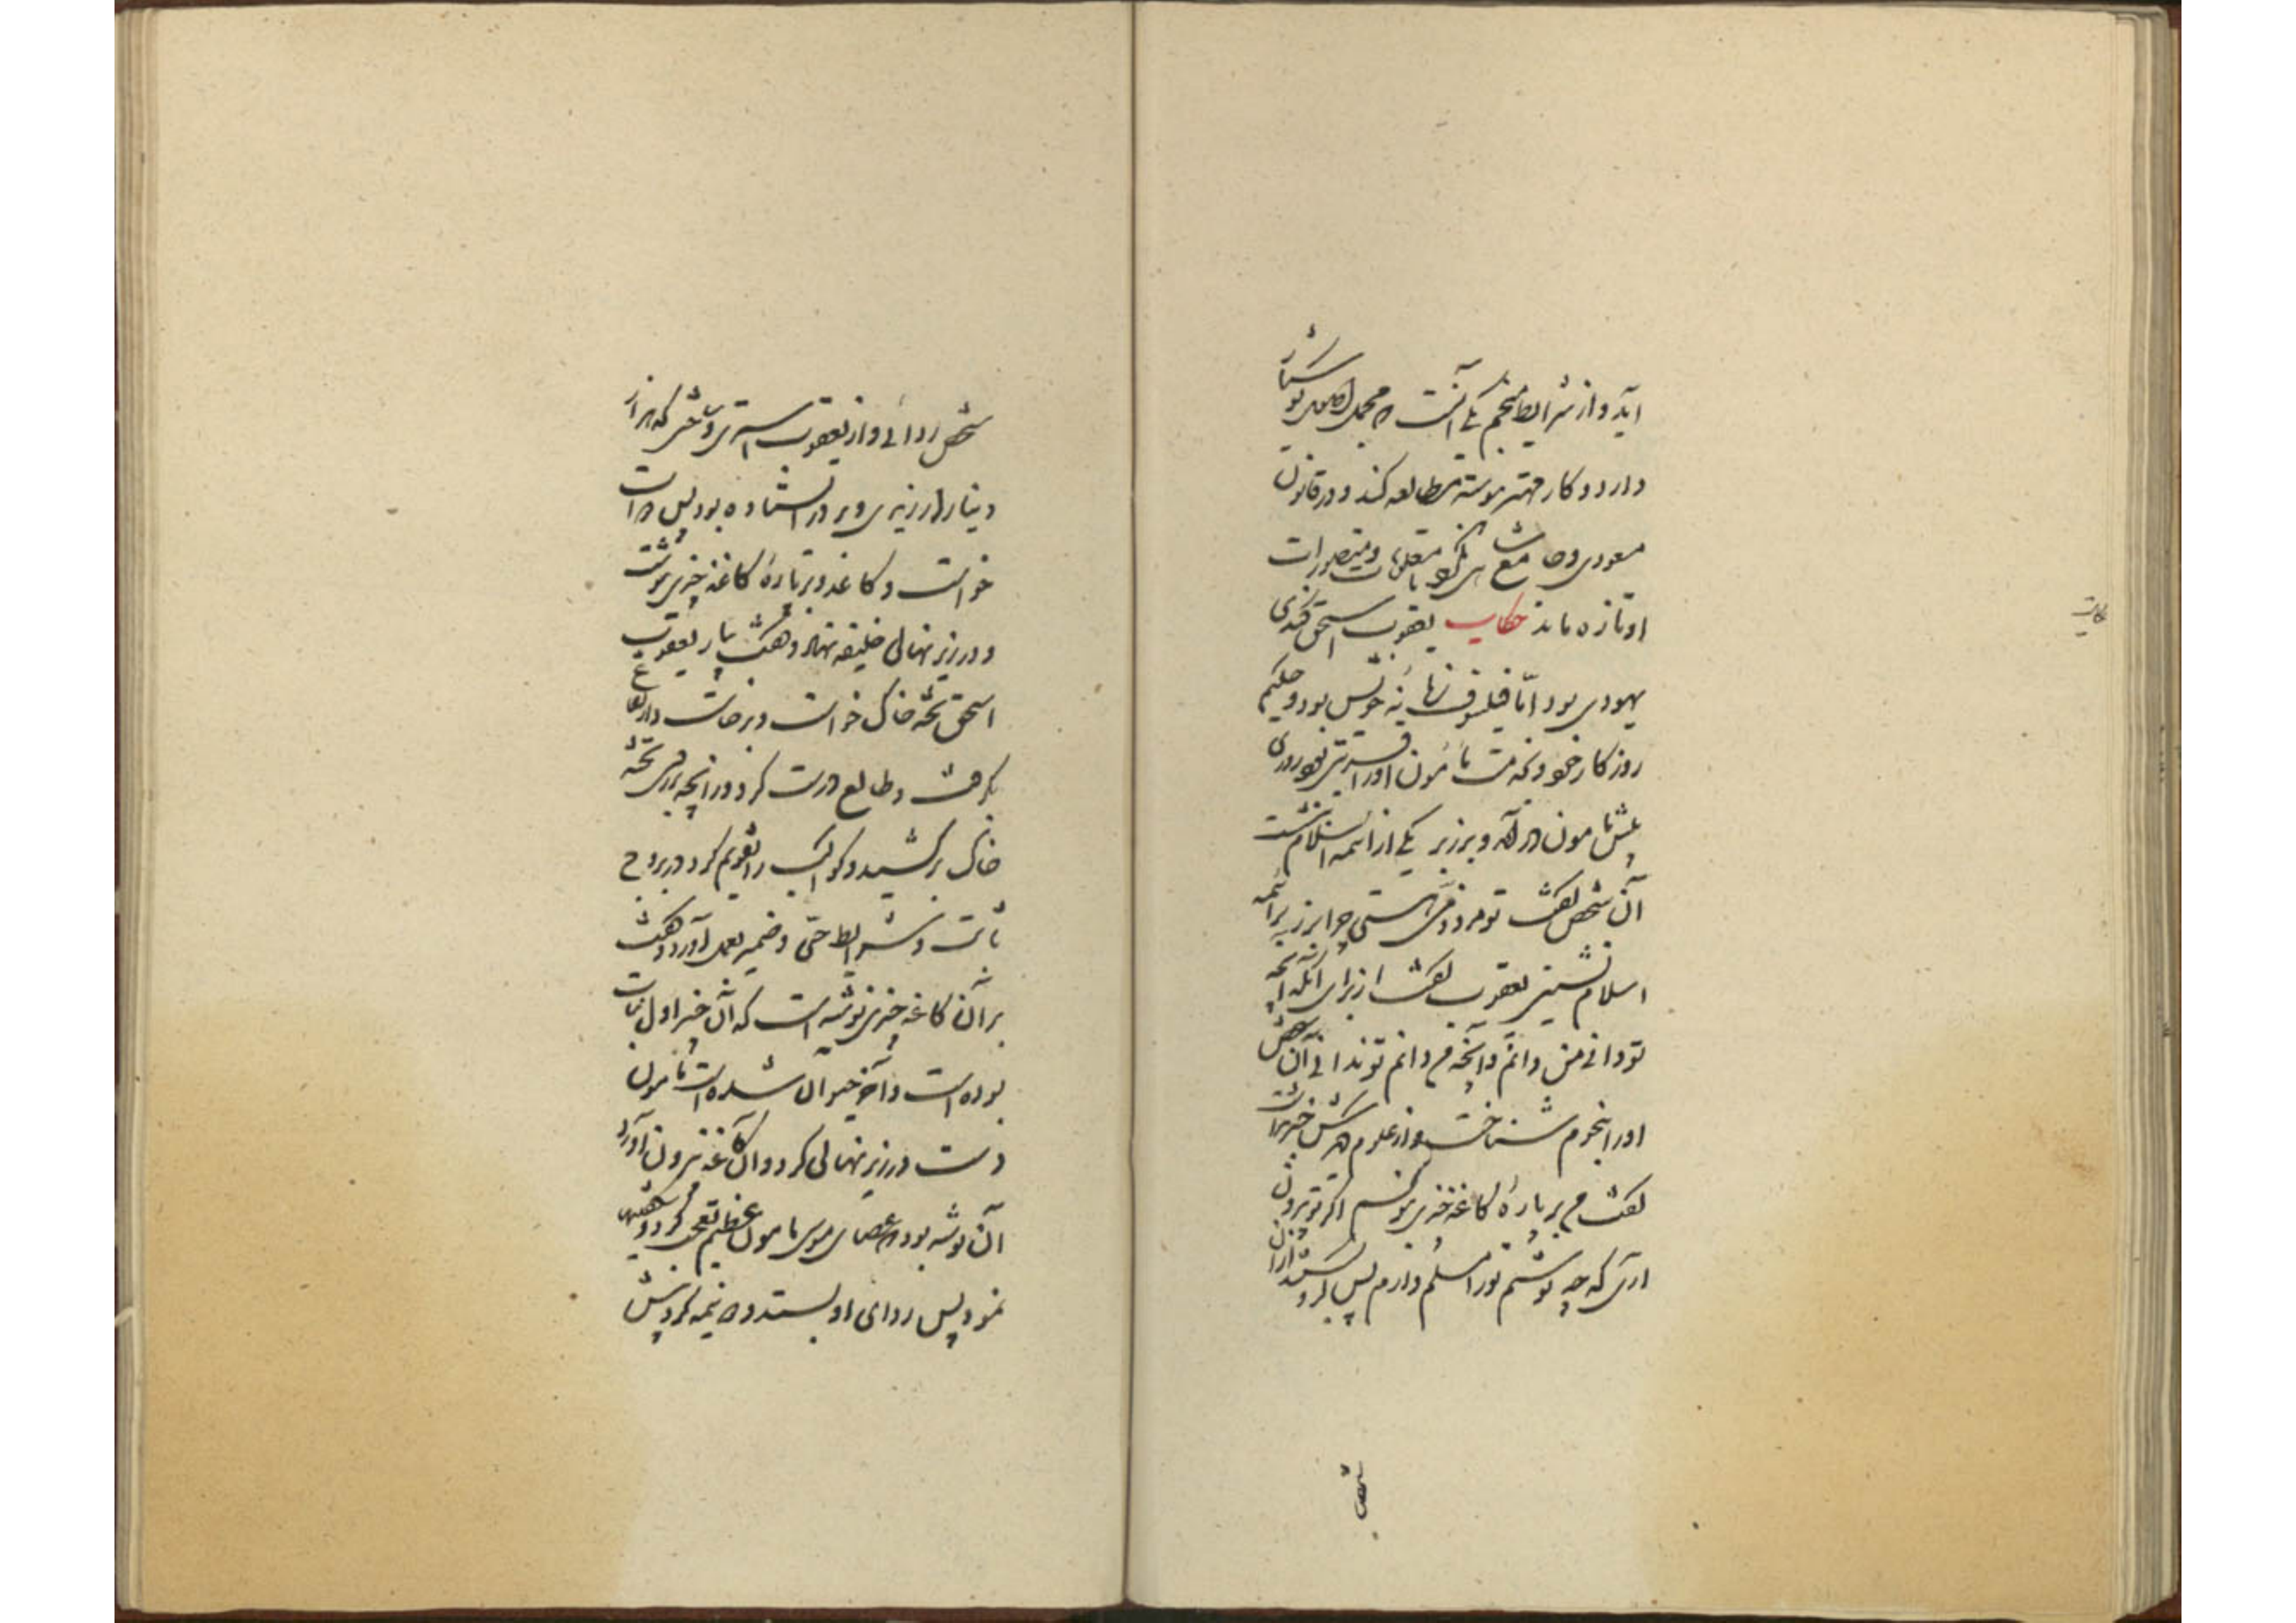 آید و از شرایط منجم یکی آنست که مجمل الاصول کوشیار
دارد و کار مهتر پیوسته مطالعه کند و در قانون
مسعودی و جامع شاهی نگرد تا معلومات و متصورات
او تازه ماند حکایت یعقوب اسحق کندی
یهودی بود اما فیلسوف زمانهٔ خویش بود و حکیم
روزگار خود و بخدمت مأمون او را قربتی بود روزی
پیش مأمون در آمد و بر زبر یکی از ائمه اسلام نشست
آن شخص گفت تو مرد ذمی هستی چرا بر زبر ائمه
اسلام نشستی یعقوب گفت از برای آنکه آنچه
تو دانی من دانم و آنچه من دانم تو ندانی آن شخص
او را بنجوم شناخت و از علوم دیگرش خبر نداشت
گفت من بر پارهٔ کاغذ چیزی نویسم اگر تو بیرون
آری که چه نوشتم تو را مسلم دارم پس گرو بستند از آن
شخص ردائی و از یعقوب استری و ساختی که هزار
دینار ارزیدی و بر در ایستاده بود پس دوات
خواست و کاغذ و بر پارهٔ کاغذ چیزی نوشت
و در زیر نهالی خلیفه نهاد و گفت بیار یعقوب
اسحق تخته خاک خواست و برخاست و ارتفاع
بگرفت و طالع درست کرد و زایچه بر روی تخته
خاک برکشید و کواکب را تقویم کرد و در بروج
ثابت و شرایط خبی و ضمیر بعمل آورد و گفت
بر آن کاغذ چیزی نوشته است که آن چیز اول نبات
بوده است و آخر حیوان شده است مأمون
دست در زیر نهالی کرد و آن کاغذ بیرون آورد
آن نوشته بود که عصای موسی مأمون عظیم تعجب کرد و آن شخص
نمود پس ردای او بستد و دو نیمه کرد پیش
شخص
حکایت